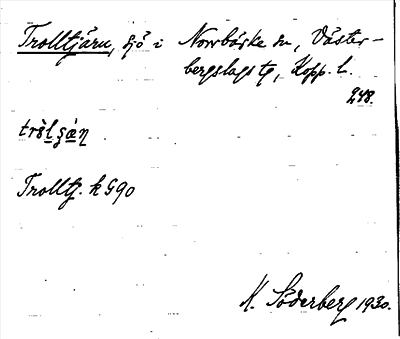 Trolltjärn, sjö i Norrbärke sn, Väster-
bergslags tg, Kopp. l.
248.
Trolltj. k G90
K. Söderberg 1930.